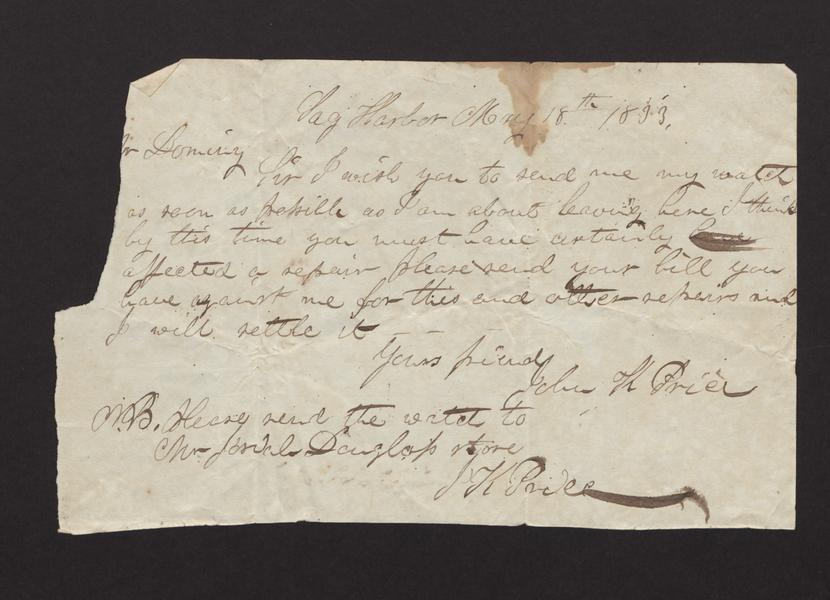 Sag Harbor May 18th 1833,
r Dominy
Sir I wish you to send me my watch
as soon as possible as I am about leaving here I think
by this time you must have certainly
affected a repair please send your bill you
have against me for this and other repairs and
I will settle it
Yours friend
John K Price
N.B. Please send the watch to
Mr Josiah Douglass store
J K Price